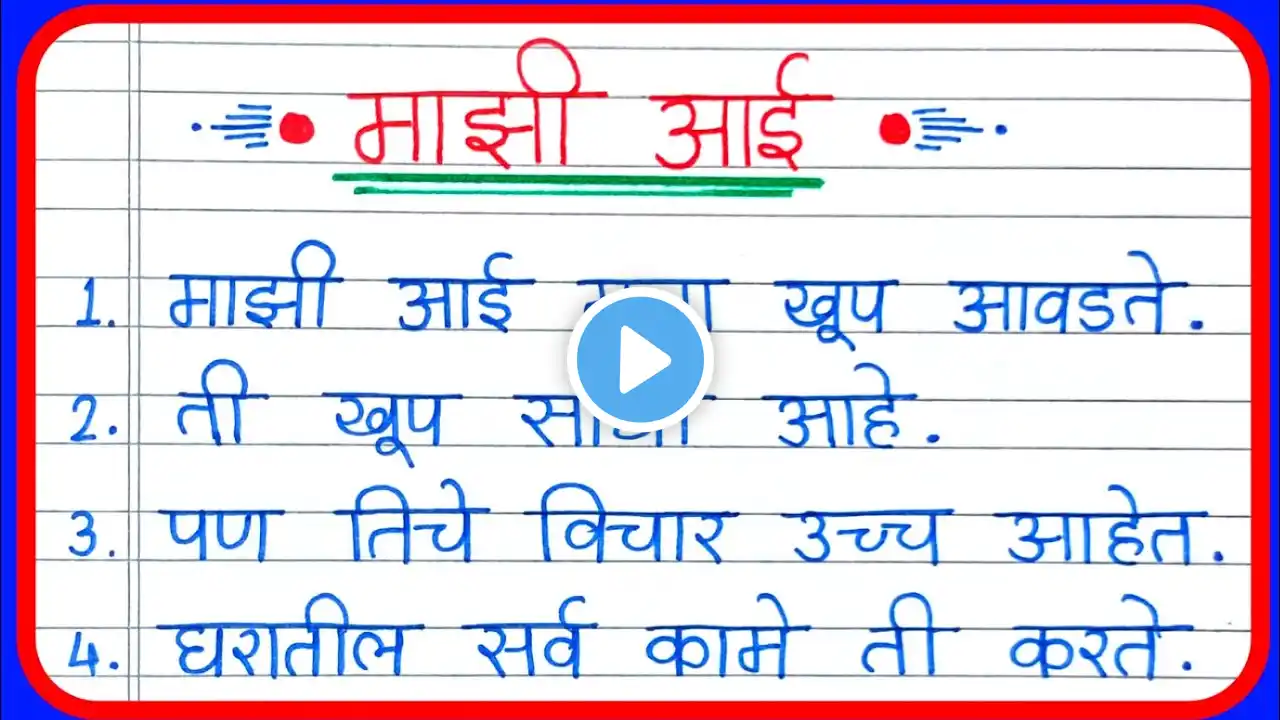 माझी आई
1. माझी आई खूप आवडते.
2. ती खूप आहे.
3. पण तिचे विचार उच्च आहेत.
4. घरातील सर्व कामे ती करते.